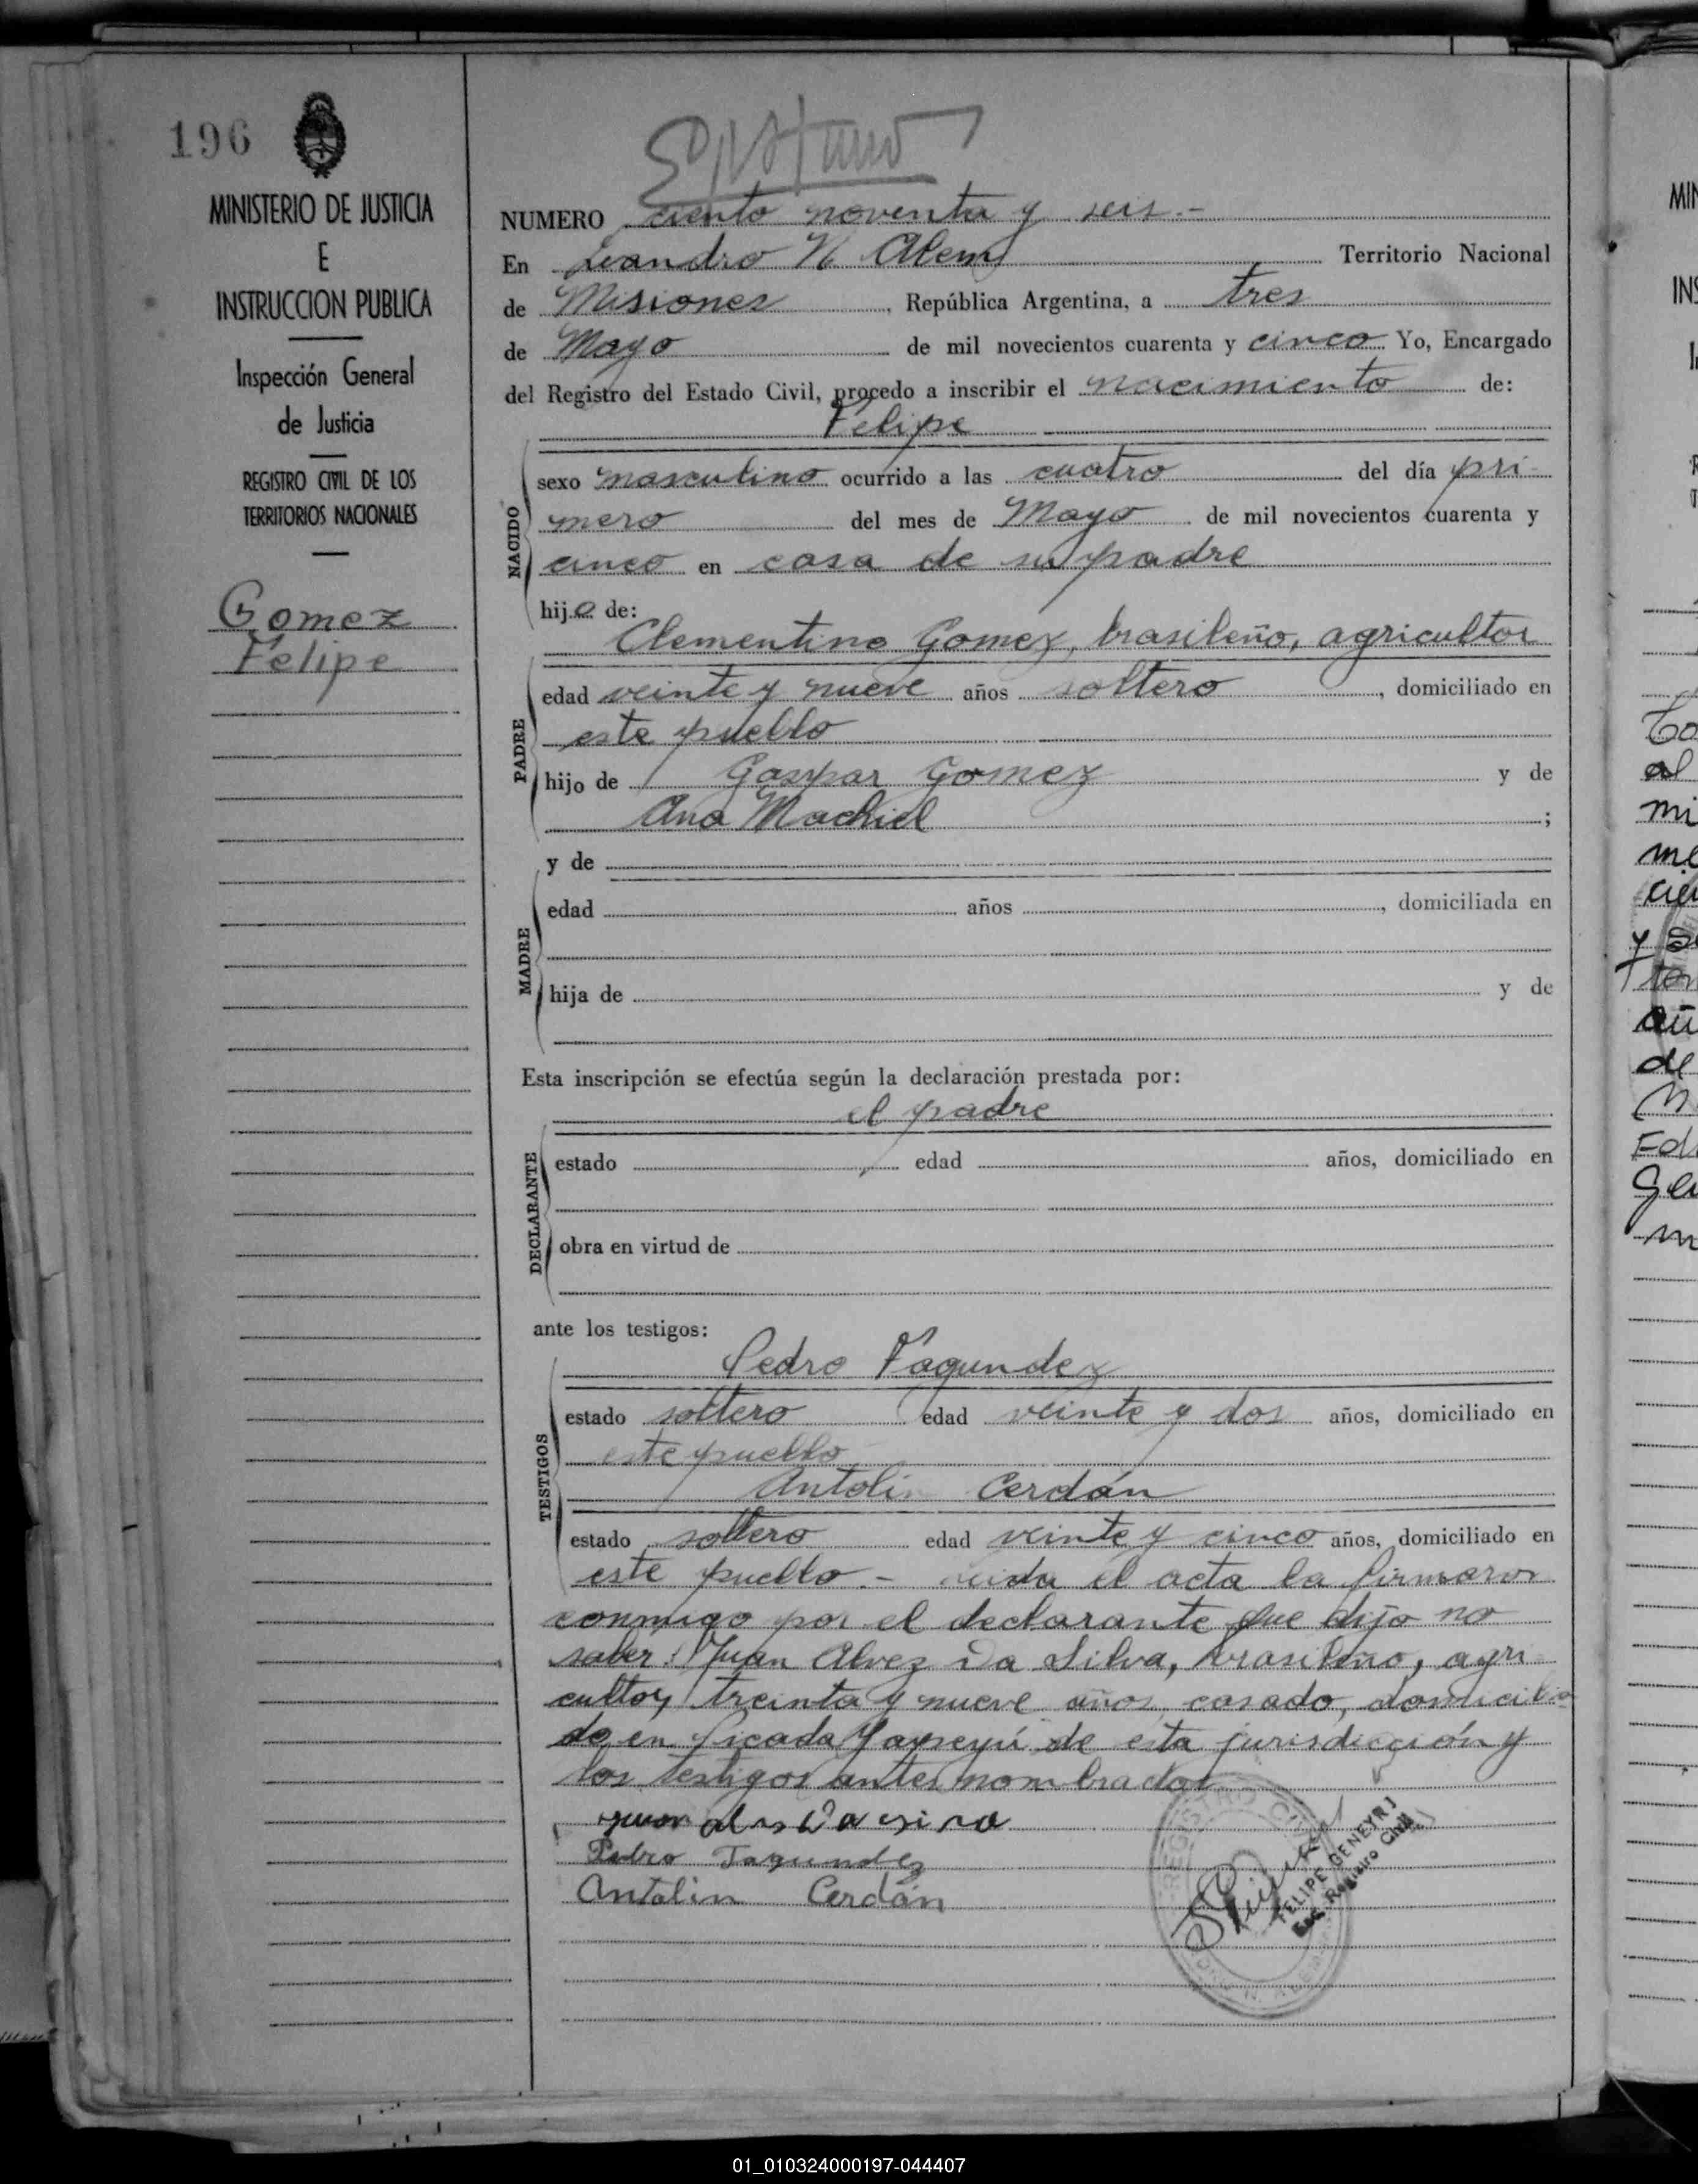 196
MINISTERIO DE JUSTICIA
E
INSTRUCCION PUBLICA
Inspección General
de Justicia
REGISTRO CIVIL DE LOS
TERRITORIOS NACIONALES
Gomez
Felipe
NUMERO ciento noventa y seis.-
En Leandro N. Alem Territorio Nacional
de Misiones, República Argentina, a tres
de Mayo de mil novecientos cuarenta y cinco Yo, Encargado
del Registro del Estado Civil, procedo a inscribir el nacimiento de:
Felipe
NACIDO
sexo masculino ocurrido a las cuatro del día pri-
mero del mes de Mayo de mil novecientos cuarenta y
cinco en casa de su padre
hijo de:
Clementino Gomez, brasileño, agricultor
PADRE
edad veinte y nueve años soltero, domiciliado en
este pueblo
hijo de Gaspar Gomez y de
Ana Machiel;
y de
MADRE
edad años, domiciliada en
hija de y de
Esta inscripción se efectúa según la declaración prestada por:
el padre
DECLARANTE
estado edad años, domiciliado en
obra en virtud de
ante los testigos:
Pedro Fagundez
TESTIGOS
estado soltero edad veinte y dos años, domiciliado en
este pueblo
Antolin Cerdán
estado soltero edad veinte y cinco años, domiciliado en
este pueblo.- leida el acta la firmaron
conmigo por el declarante que dijo no
saber: Juan Alvez Da Silva, brasileño, agri-
cultor, treinta y nueve años, casado, domicilia
do en picada Yapeyú de esta jurisdicción y
los testigos antes nombrados
Pedro Fagundez
Antolin Cerdán
REGISTRO CIVIL
FELIPE GENEYRI
Enc. Registro Civil
01_010324000197-044407